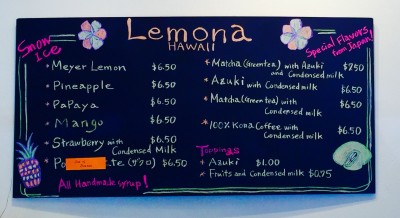 Lemona
HAWAII
Snow
Ice
Special Flavors
from Japan
* Meyer Lemon $6.50
* Pineapple $6.50
* PaPaya $6.50
* Mango $6.50
* Strawberry with $6.50
Condensed Milk
* Po te (ザクロ) $6.50
All Handmade syrup!
* Matcha (Green tea) with Azuki $7.50
and Condensed milk
* Azuki with Condensed milk $6.50
* Matcha (Green tea) with $6.50
Condensed milk
* 100% Kona Coffee with $6.50
Condensed milk
Toppings
+ Azuki $1.00
* Fruits and Condensed milk $0.75